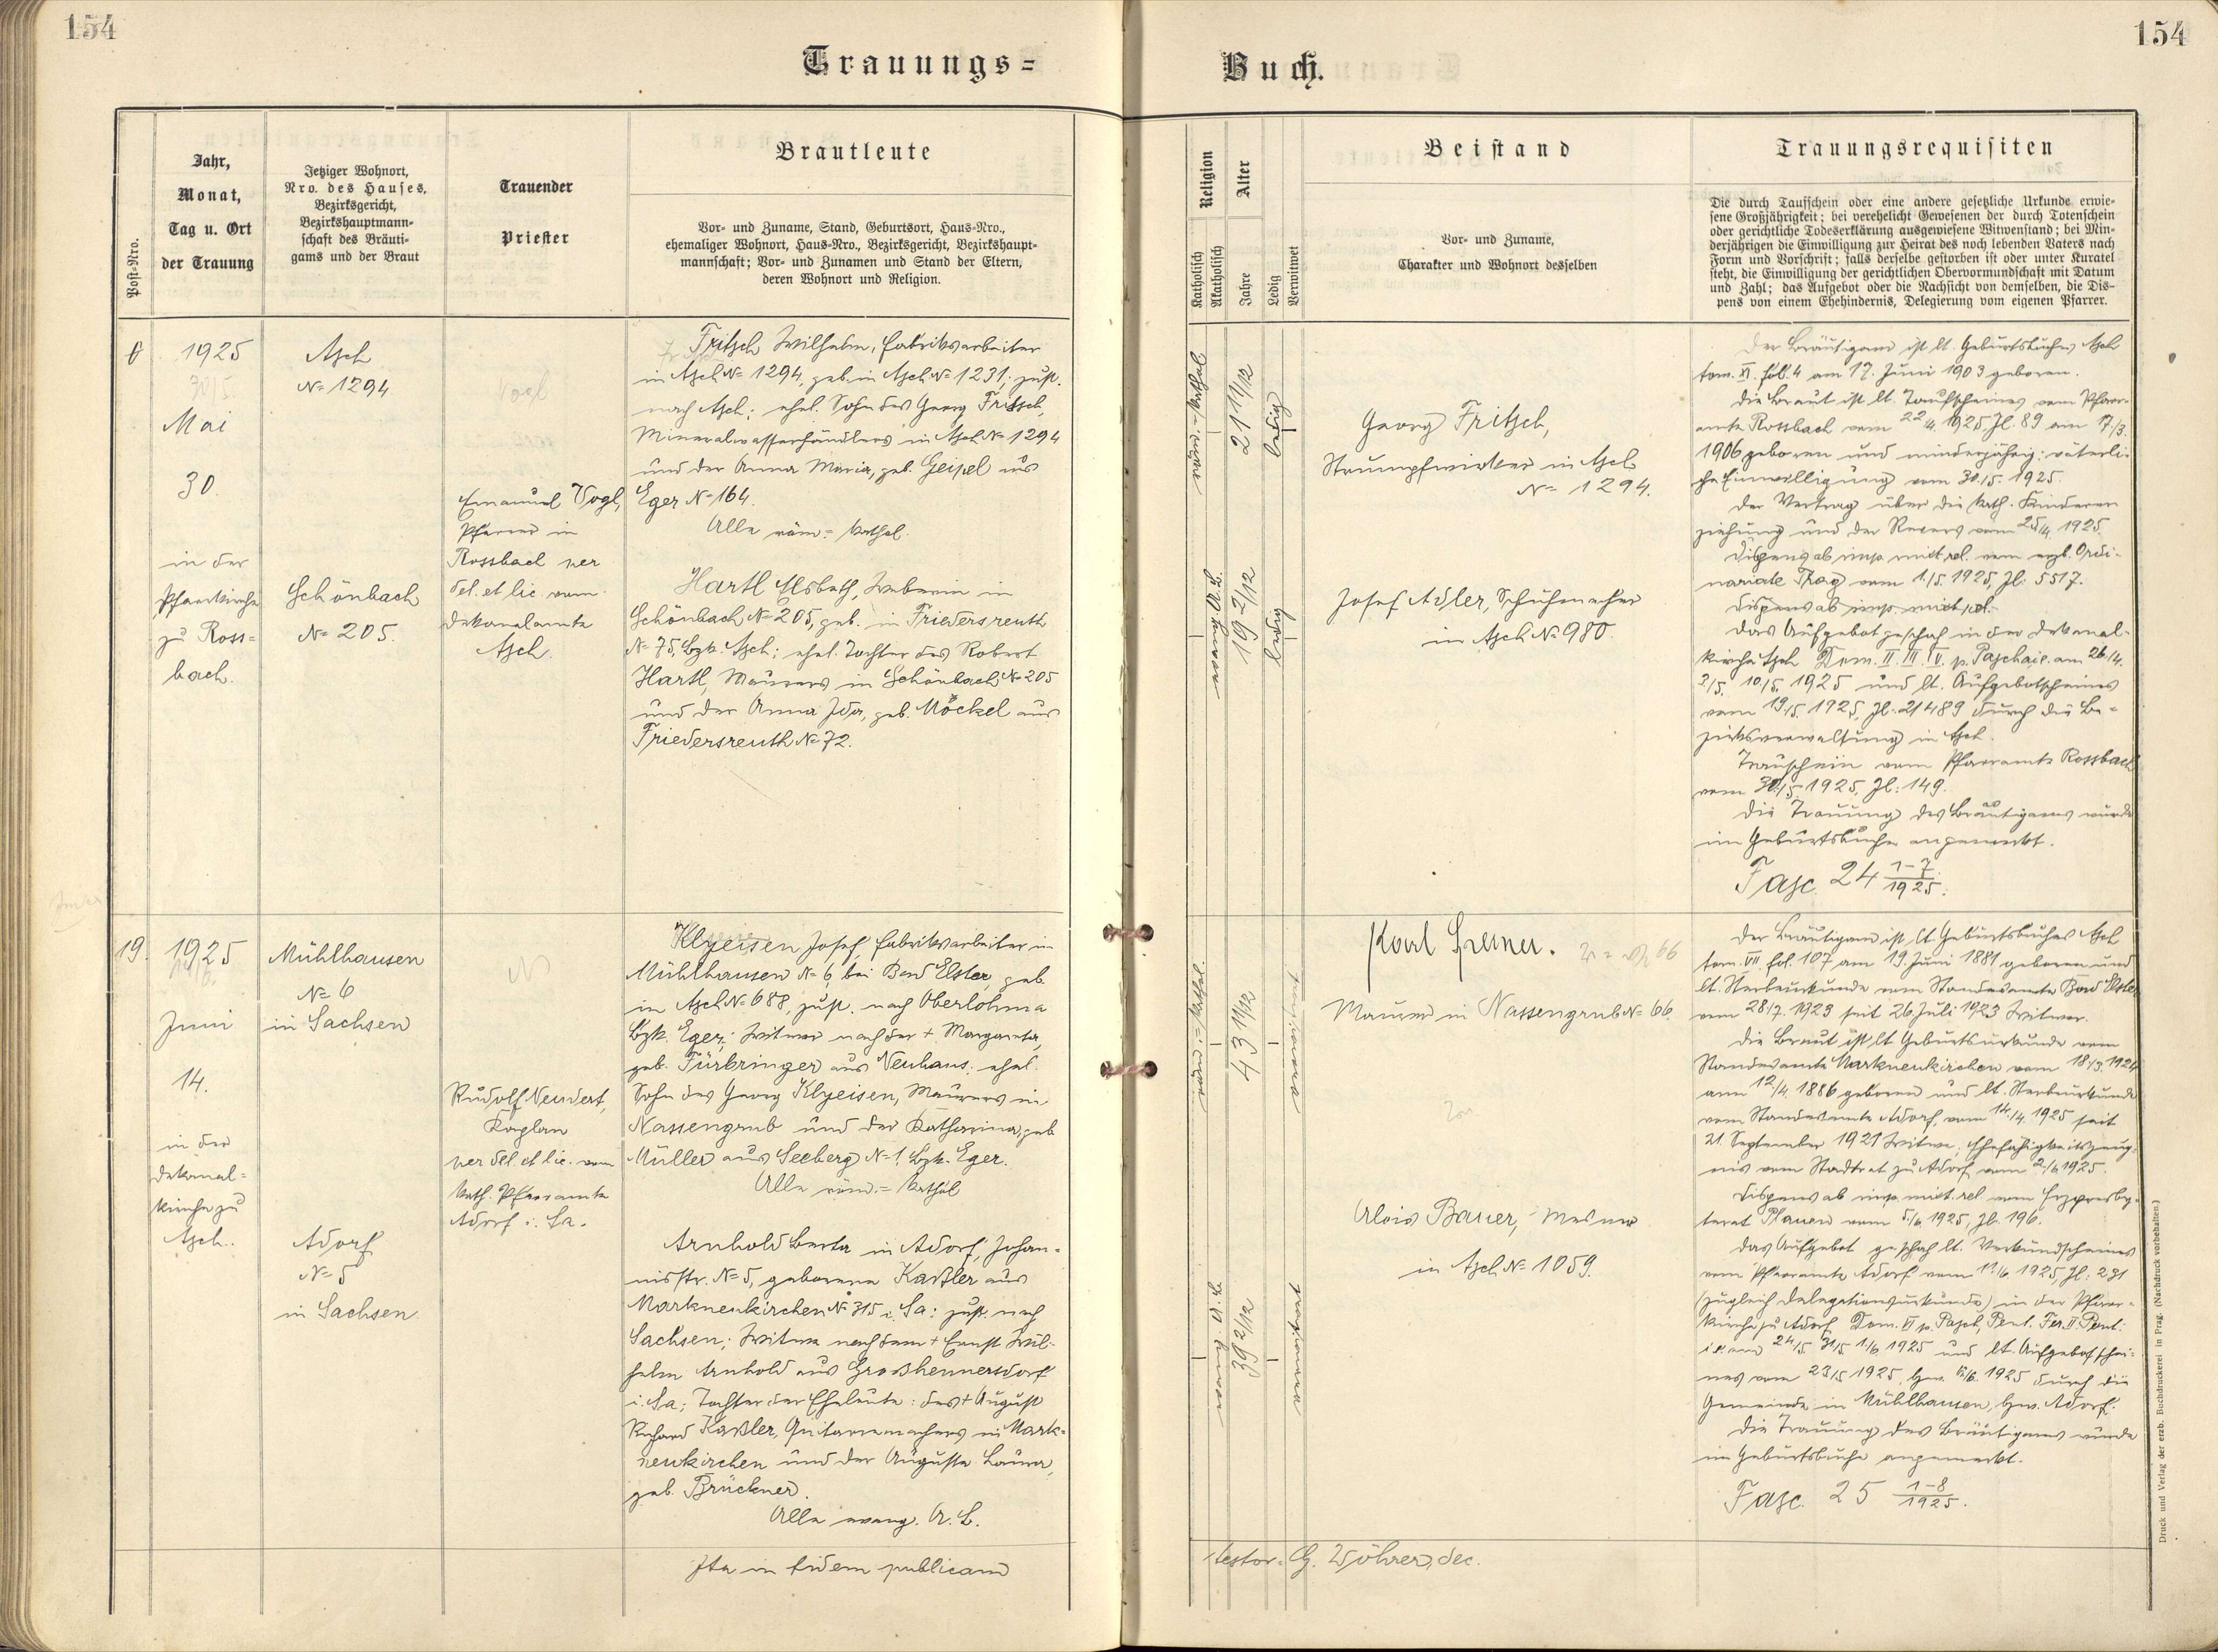 154
154
Trauungs=
Buch.
Post-Nro.
Jahr,
Monat,
Tag u. Ort
der Trauung
Jetziger Wohnort,
Nro. des Hauses,
Bezirksgericht,
Bezirkshauptmann-
schaft des Bräuti-
gams und der Braut
Trauender
Priester
Brautleute
Vor- und Zuname, Stand, Geburtsort, Haus-Nro.,
ehemaliger Wohnort, Haus-Nro., Bezirksgericht, Bezirkshaupt-
mannschaft; Vor- und Zunamen und Stand der Eltern,
deren Wohnort und Religion.
Religion
Katholisch
Akatholisch
Alter
Jahre
Ledig
Verwitwet
Beistand
Vor- und Zuname,
Charakter und Wohnort desselben
Trauungsrequisiten
Die durch Taufschein oder eine andere gesetzliche Urkunde erwie-
sene Großjährigkeit; bei verehelicht Gewesenen der durch Totenschein
oder gerichtliche Todeserklärung ausgewiesene Witwenstand; bei Min-
derjährigen die Einwilligung zur Heirat des noch lebenden Vaters nach
Form und Vorschrift; falls derselbe gestorben ist oder unter Kuratel
steht, die Einwilligung der gerichtlichen Obervormundschaft mit Datum
und Zahl; das Aufgebot oder die Nachsicht von demselben, die Dis-
pens von einem Ehehindernis, Delegierung vom eigenen Pfarrer.
1925
30/5.
Mai
30.
in der
Pfarrkirche
zu Ross=
bach.
Asch
No 1294
Schönbach
No 205.
Vogl
Emanuel Vogl,
Pfarrer in
Rossbach per
del. et lic vom
Dekanalamte
Asch.
Fritsch Wilhelm, Fabriksarbeiter
in Asch No 1294, geb. in Asch No 1231; zust.
nach Asch; ehel. Sohn des Georg Fritsch,
Mineralwasserhändlers in Asch No 1294
und der Anna Maria, geb. Geipel aus
Eger No 164.
Alle röm.= kathol.
Hartl Elsbeth, Weberin in
Schönbach No 205, geb. in Friedersreuth
No 75, Bzk. Asch; ehel. Tochter des Robert
Hartl, Maurers in Schönbach No 205
und der Anna Ida, geb. Möckel aus
Friedersreuth No 72.
röm.= kathol
evang. A. B.
21 11/12
19 2/12
ledig
ledig
Georg Fritsch,
Strumpfwirker in Asch
No 1294.
Josef Adler, Schuhmacher
in Asch No 980.
Der Bräutigam ist lt. Geburtsbuches Asch
tom. XI. fol. 4 am 17. Juni 1903 geboren.
Die Braut ist lt. Taufscheines vom Pfarr-
amte Rossbach vom 22/4. 1925, Zl. 89 am 17/3.
1906 geboren und minderjährig; väterli-
che Einwilligung vom 30./5. 1925.
Der Vertrag über die kath. Kinderer
ziehung und der Revers vom 25/4. 1925.
Dispens ab imp. mixt. rel. vom erzb. Ordi-
nariate Prag vom 1./5. 1925, Zl. 5517.
Dispens ab imp. mixt. rel.
Das Aufgebot geschah in der Dekanal-
kirche Asch Dom. II. III. IV. p. Pasch am 26./4.
3/5. 10./5. 1925 und lt. Aufgebotscheines
vom 19./5. 1925, Zl. 21489 durch die Be-
zirksverwaltung in Asch.
Trauschein vom Pfarramte Rossbach
vom 30./5. 1925, Zl: 149.
Die Trauung des Bräutigams wurde
im Geburtsbuche angemerkt.
Fasc. 24 1-7/1925.
19.
1925
14/6.
Juni
14.
in der
Dekanal=
kirche zu
Asch.
Mühlhausen
No 6
in Sachsen
Adorf
No 5
in Sachsen
Rudolf Neudert,
Kaplan
per del. et lic. vom
kath. Pfarramte
Adorf i. Sa.
Klyeisen Josef, Fabriksarbeiter in
Mühlhausen No 6, bei Bad Elster, geb.
in Asch No 688, zust. nach Oberlohma
Bzk. Eger; Witwer nach der + Margareta,
geb. Fürbringer aus Neuhaus; ehel.
Sohn des Georg Klyeisen, Maurers in
Nassengrub und der Katharina, geb.
Müller aus Seeberg No 1, Bzk. Eger.
Alle röm.= kathol
Arnhold Berta in Adorf, Johan-
nisstr. No 5, geborene Kaßler aus
Markneukirchen No 315 i. Sa: zust. nach
Sachsen; Witwe nach dem + Ernst Wil-
helm Arnhold aus Großhennersdorf
i. Sa; Tochter der Eheleute: des + August
Richard Kaßler, Guitarremachers in Mark-
neukirchen und der Auguste Laura,
geb. Brückner.
Alle evang. A. B.
röm.= kathol.
evang. A. B.
43 11/12
39 2/12
verwitwet
verwitwet
Karl
Maurer in Nassengrub No 66.
Alois Bauer, Mesner
in Asch No 1059.
Der Bräutigam ist lt. Geburtsbuches Asch
tom. VII. fol. 107 am 19. Juni 1881 geboren und
lt. Sterbeurkunde vom Standesamte Bad Elster
vom 28./7. 1923 seit 26. Juli 1923 Witwer.
Die Braut ist lt Geburtsurkunde vom
Standesamte Markneukirchen vom 18./3. 1924
am 12./4. 1886 geboren und lt. Sterbeurkunde
vom Standesamte Adorf, vom 14./4. 1925 seit
21. September 1921 Witwe; Ehefähigkeitszeug-
nis vom Stadtrat zu Adorf vom 2./6. 1925.
Dispens ab imp. mixt. rel vom Erzpresby-
terat Plauen vom 5./6. 1925, Zl. 196.
Das Aufgebot geschah lt. Verkündscheines
vom Pfarramte Adorf vom 11./6. 1925, Zl: 231
(zugleich Delegationsurkunde) in der Pfarr-
kirche zu Adorf Dom. VI p. Pasch, Pent. Fer. II. Pent.
i.e. am 24/5. 31/5 1./6 1925 und lt. Aufgebotschei-
nes vom 23/5 1925, bzw. 1925 durch die
Gemeinde in Mühlhausen, bzw. Adorf.
Die Trauung des Bräutigams wurde
im Geburtsbuche angemerkt.
Fasc. 25 1-8/1925.
Ita in fidem publicam
testor: G. Wöhrer, dec.
Druck und Verlag der erzb. Buchdruckerei in Prag. (Nachdruck vorbehalten.)